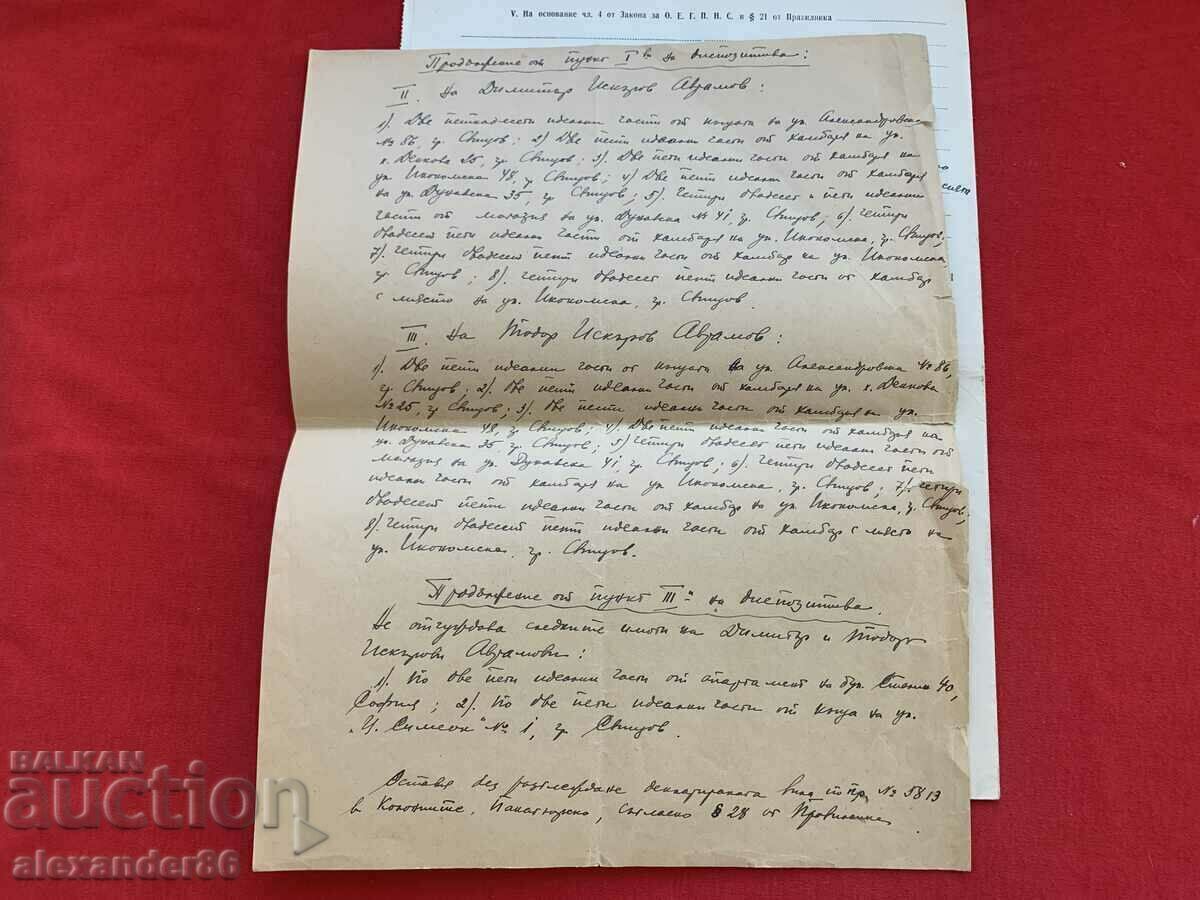 V. На основание чл. 4 от Закона за О. Е. Г. П. Н. С. и § 21 от Правилника
Продължение от пункт I в на диспозитива:
II. На Димитър Искъров Аврамов:
1). Две петнадесети идеални части от къщата на ул. Александровска
№ 86, гр. Свищов; 2) Две пети идеални части от хамбаря на ул.
х. Денкова 25, гр. Свищов; 3). Две пети идеални части от хамбаря на
ул. Икономска 48, гр. Свищов; 4) Две пети идеални части от хамбаря
на ул. Дунавска 35, гр. Свищов; 5). Четири двадесет и пети идеални
части от магазия на ул. Дунавска № 41, гр. Свищов; 6). Четири
двадесет пети идеални части от хамбаря на ул. Икономска, гр. Свищов;
7). Четири двадесет пети идеални части от хамбар на ул. Икономска,
гр. Свищов; 8). Четири двадесет пети идеални части от хамбар
с мястото на ул. Икономска, гр. Свищов.
III. На Тодор Искъров Аврамов:
1). Две пети идеални части от къщата на ул. Александровска № 86,
гр. Свищов; 2). Две пети идеални части от хамбаря на ул. х. Денкова
№ 25, гр. Свищов; 3). Две пети идеални части от хамбаря на ул.
Икономска 48, гр. Свищов; 4). Две пети идеални части от хамбаря на
ул. Дунавска 35, гр. Свищов; 5) Четири двадесет пети идеални части от
магазия на ул. Дунавска 41, гр. Свищов; 6). Четири двадесет пети
идеални части от хамбаря на ул. Икономска, гр. Свищов; 7). Четири
двадесет пети идеални части от хамбар на ул. Икономска, гр. Свищов;
8). Четири двадесет пети идеални части от хамбар с място на
ул. Икономска, гр. Свищов.
Продължение от пункт III" на диспозитива.
Не отчуждава следните имоти на Димитър и Тодор
Искърови Аврамови:
1). По две пети идеални части от апартамент на бул. Сталин 40,
София; 2). По две пети идеални части от къща на ул.
„Ц. Симеон" № 1, гр. Свищов.
Оставя без разглеждане декларираната вила пл. № 5813
в Колониите, Панагюрско, съгласно § 28 от Правилника
BALKAN
auction
alexander86